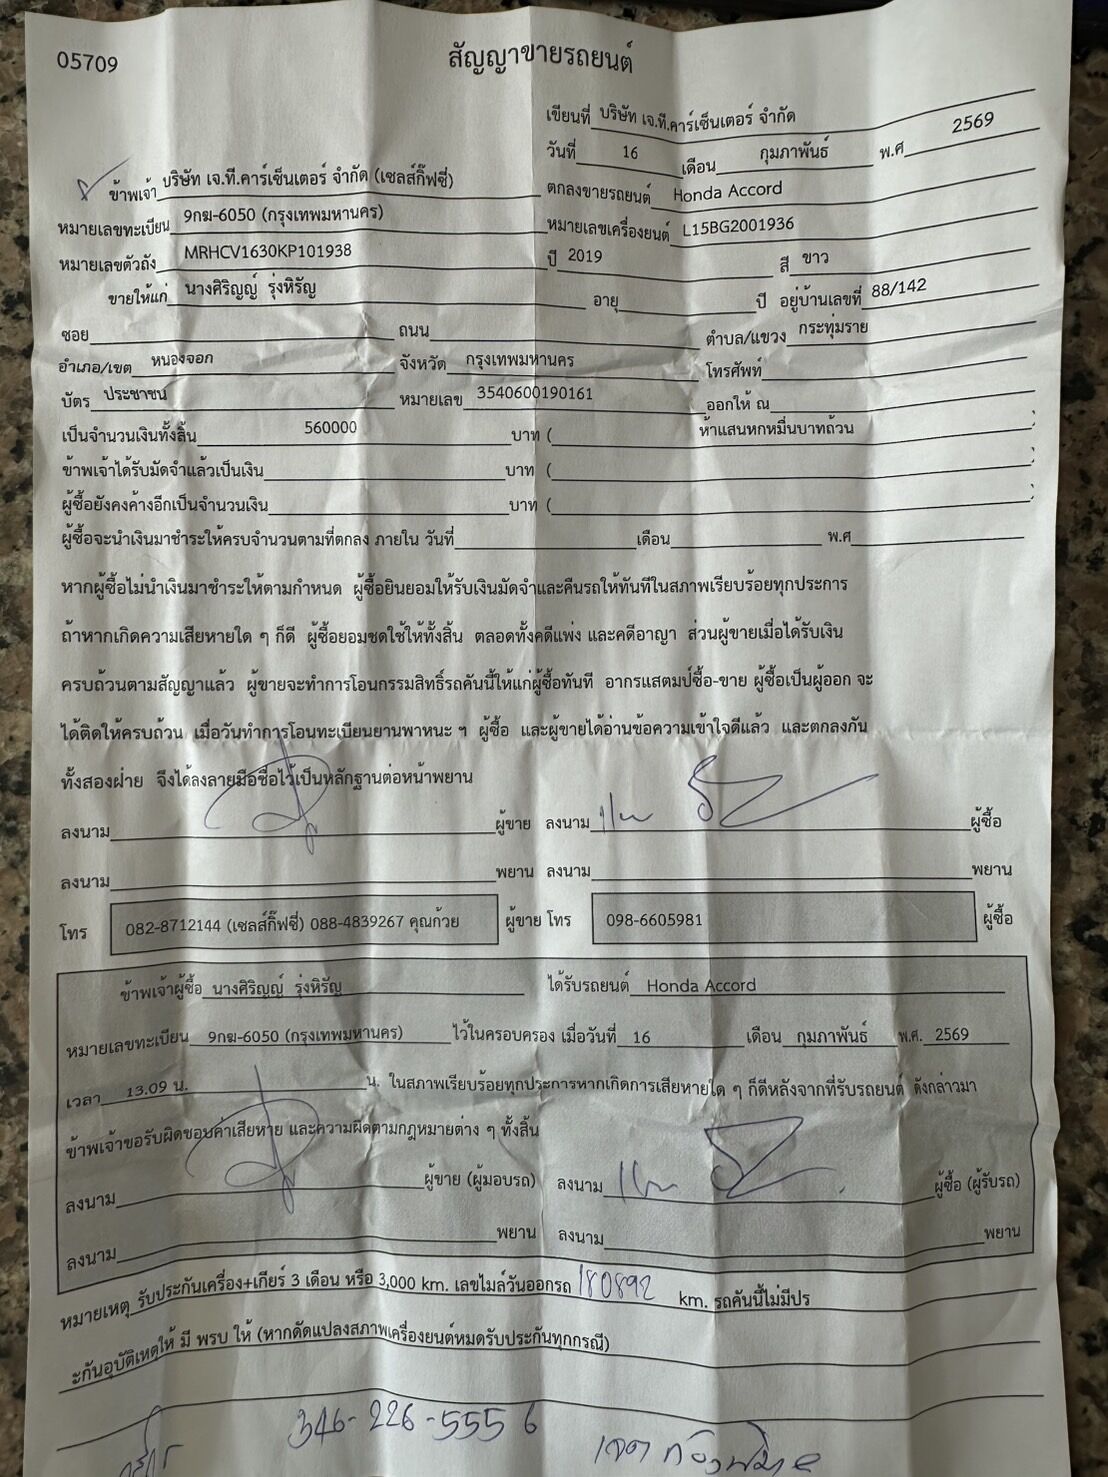 05709
สัญญาขายรถยนต์
เขียนที่ บริษัท เจ.ที.คาร์เซ็นเตอร์ จำกัด
วันที่ 16 เดือน กุมภาพันธ์ พ.ศ 2569
ข้าพเจ้า บริษัท เจ.ที.คาร์เซ็นเตอร์ จำกัด (เซลส์กิ๊ฟซี่) ตกลงขายรถยนต์ Honda Accord
หมายเลขทะเบียน 9กฆ-6050 (กรุงเทพมหานคร) หมายเลขเครื่องยนต์ L15BG2001936
หมายเลขตัวถัง MRHCV1630KP101938 ปี 2019 สี ขาว
ขายให้แก่ นางศิริญญ์ รุ่งหิรัญ อายุ ปี อยู่บ้านเลขที่ 88/142
ซอย ถนน ตำบล/แขวง กระทุ่มราย
อำเภอ/เขต หนองจอก จังหวัด กรุงเทพมหานคร โทรศัพท์
บัตร ประชาชน หมายเลข 3540600190161 ออกให้ ณ
เป็นจำนวนเงินทั้งสิ้น 560000 บาท ( ห้าแสนหกหมื่นบาทถ้วน )
ข้าพเจ้าได้รับมัดจำแล้วเป็นเงิน บาท ( )
ผู้ซื้อยังคงค้างอีกเป็นจำนวนเงิน บาท ( )
ผู้ซื้อจะนำเงินมาชำระให้ครบจำนวนตามที่ตกลง ภายใน วันที่ เดือน พ.ศ
หากผู้ซื้อไม่นำเงินมาชำระให้ตามกำหนด ผู้ซื้อยินยอมให้รับเงินมัดจำและคืนรถให้ทันทีในสภาพเรียบร้อยทุกประการ
ถ้าหากเกิดความเสียหายใด ๆ ก็ดี ผู้ซื้อยอมชดใช้ให้ทั้งสิ้น ตลอดทั้งคดีแพ่ง และคดีอาญา ส่วนผู้ขายเมื่อได้รับเงิน
ครบถ้วนตามสัญญาแล้ว ผู้ขายจะทำการโอนกรรมสิทธิ์รถคันนี้ให้แก่ผู้ซื้อทันที อากรแสตมป์ซื้อ-ขาย ผู้ซื้อเป็นผู้ออก จะ
ได้ติดให้ครบถ้วน เมื่อวันทำการโอนทะเบียนยานพาหนะ ฯ ผู้ซื้อ และผู้ขายได้อ่านข้อความเข้าใจดีแล้ว และตกลงกัน
ทั้งสองฝ่าย จึงได้ลงลายมือชื่อไว้เป็นหลักฐานต่อหน้าพยาน
ลงนาม ผู้ขาย ลงนาม ผู้ซื้อ
ลงนาม พยาน ลงนาม พยาน
โทร 082-8712144 (เซลส์กิ๊ฟซี่) 088-4839267 คุณก้วย ผู้ขาย โทร 098-6605981 ผู้ซื้อ
ข้าพเจ้าผู้ซื้อ นางศิริญญ์ รุ่งหิรัญ ได้รับรถยนต์ Honda Accord
หมายเลขทะเบียน 9กฆ-6050 (กรุงเทพมหานคร) ไว้ในครอบครอง เมื่อวันที่ 16 เดือน กุมภาพันธ์ พ.ศ. 2569
เวลา 13.09 น. น. ในสภาพเรียบร้อยทุกประการหากเกิดการเสียหายใด ๆ ก็ดีหลังจากที่รับรถยนต์ ดังกล่าวมา
ข้าพเจ้าขอรับผิดชอบค่าเสียหาย และความผิดตามกฎหมายต่าง ๆ ทั้งสิ้น
ลงนาม ผู้ขาย (ผู้มอบรถ) ลงนาม ผู้ซื้อ (ผู้รับรถ)
ลงนาม พยาน ลงนาม พยาน
หมายเหตุ รับประกันเครื่อง+เกียร์ 3 เดือน หรือ 3,000 km. เลขไมล์วันออกรถ 180892 km. รถคันนี้ไม่มีปร
ะกันอุบัติเหตุให้ มี พรบ ให้ (หากดัดแปลงสภาพเครื่องยนต์หมดรับประกันทุกกรณี)
346-226-555 6